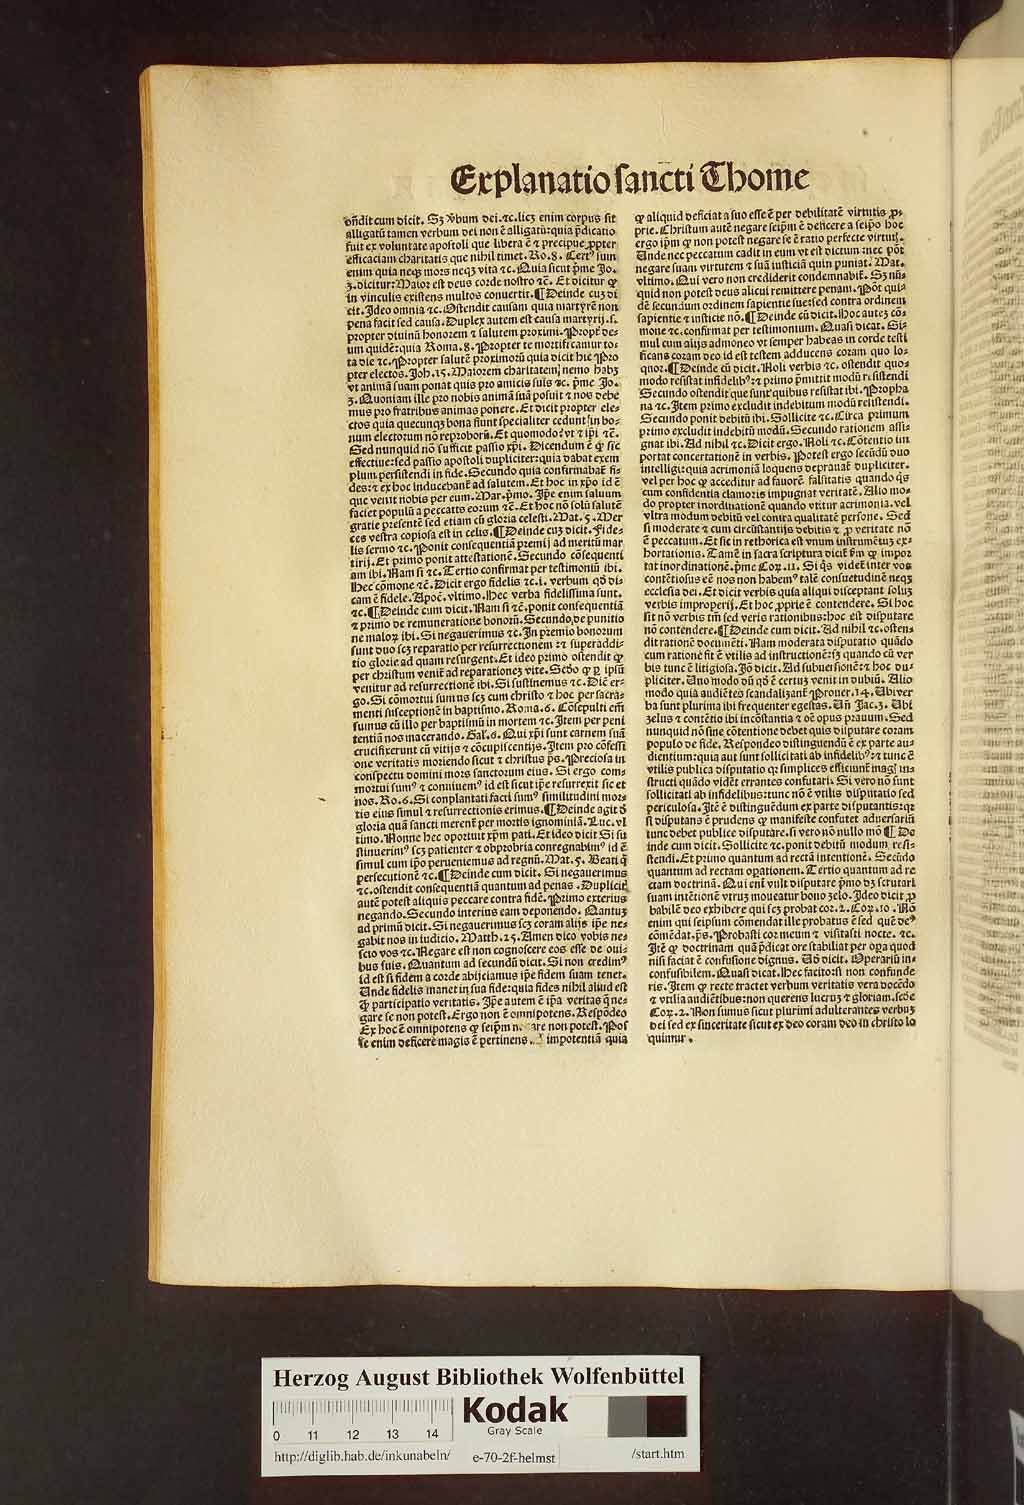 Explanatio sancti Thome
on̄dit cum dicit. Sꝫ v̄bum dei. ⁊c. licꝫ enim corpus sit
alligatū tamen verbum dei non ē alligatū: quia p̄dicatio
fuit ex voluntate apostoli que libera ē ⁊ precipue ꝓpter
efficaciam charitatis que nihil timet. Ro. 8. Certꝰ sum
enim quia neqꝫ mors neqꝫ vita ⁊c. Quia sicut p̄me Jo.
3. dicitur: Maior est deus corde nostro ⁊c̄. Et dicitur ꝙ
in vinculis existens multos conuertit. ¶ Deinde cuꝫ di
cit. Ideo omnia ⁊c. Ostendit causam quia martyrē non
pena facit sed causa. Duplex autem est causa martyrij. s.
propter diuinū honorem ⁊ salutem proximi. Propt̄ de⸗
um quidē: quia Roma. 8. Propter te mortificamur to⸗
ta die ⁊c. Propter salutē proximorū quia dicit hic Pro
pter electos. Joh. 15. Maiorem charitatem nemo habꝫ
vt animā suam ponat quis pro amicis suis ⁊c. p̄me Jo.
3. Quoniam ille pro nobis animā suā posuit ⁊ nos debe
mus pro fratribus animas ponere. Et dicit propter ele⸗
ctos quia quecunqꝫ bona fiunt specialiter cedunt in bo⸗
num electorum nō reproborū. Et quomodo: vt ⁊ ip̄i ⁊c̄.
Sed nunquid nō sufficit passio xp̄i. Dicendum ē ꝙ sic
effectiue: sed passio apostoli dupliciter: quia dabat exem
plum persistendi in fide. Secundo quia confirmabat̄ fi⸗
des: ⁊ ex hoc inducebant̄ ad salutem. Et hoc in xp̄o id ē
que venit nobis per eum. Mar. p̄mo. Ip̄e enim saluum
faciet populū a peccatis eorum ⁊c̄. Et hoc nō solū salutē
gratie presentē sed etiam cū gloria celesti. Mat. 5. Mer
ces vestra copiosa est in celis. ¶ Deinde cuꝫ dicit. Fide⸗
lis sermo ⁊c. Ponit consequentiā premij ad meritū mar
tirij. Et primo ponit attestationē. Secundo cōsequenti
am ibi. Nam si ⁊c. Tertio confirmat per testimoniū ibi.
Hec cōmone ⁊c̄. Dicit ergo fidelis ⁊c. i. verbum qd̄ di⸗
cam ē fidele. Apoc̄. vltimo. Hec verba fidelissima sunt.
⁊c. ¶ Deinde cum dicit. Nam si ⁊c̄. ponit consequentiā
⁊ primo de remuneratione bonorū. Secundo, de punitio
ne malorꝫ ibi. Si negauerimus ⁊c. In premio bonorum
sunt duo scꝫ reparatio per resurrectionem: ⁊ superaddi⸗
tio glorie ad quam resurgent. Et ideo primo ostendit ꝙ
per christum venit̄ ad reparationeꝫ vite. Scd̄o ꝙ ꝑ ip̄sū
venitur ad resurrectionē ibi. Si sustinemus ⁊c. Dic̄ er⸗
go. Si cōmortui sumus scꝫ cum christo ⁊ hoc per sacra⸗
menti susceptionē in baptismo. Roma. 6. Cōsepulti em̄
sumus cū illo per baptismū in mortem ⁊c. Item per peni
tentiā nos macerando. Gal̄. 6. Qui xp̄i sunt carnem suā
crucifixerunt cū vitijs ⁊ cōcupiscentijs. Item pro cōfessi
one veritatis moriendo sicut ⁊ christus p̄s. Preciosa in
conspectu domini mors sanctorum eius. Si ergo com⸗
mortui sumꝰ ⁊ conuiuemꝰ id est sicut ip̄e resurrexit sic et
nos. Ro. 6. Si conplantati facti sumꝰ similitudini mor⸗
tis eius simul ⁊ resurrectionis erimus. ¶ Deinde agit ð
gloria quā sancti merent̄ per mortis ignominiā. Luc. vl
timo. Nonne hec oportuit xp̄m pati. Et ideo dicit Si su
stinuerimꝰ scꝫ patienter ⁊ obprobria conregnabimꝰ id ē
simul cum ip̄o perueniemus ad regnū. Mat. 5. Beati q̄
persecutionē ⁊c. ¶ Deinde cum dicit. Si negauerimus
⁊c. ostendit consequentiā quantum ad penas. Duplicit̄
autē potest aliquis peccare contra fidē. Primo exterius
negando. Secundo interius eam deponendo. Quantuꝫ
ad primū dicit. Si negauerimus scꝫ coram alijs ip̄e ne⸗
gabit nos in iudicio. Matth. 25. Amen dico vobis ne⸗
scio vos ⁊c. Negare est non cognoscere eos esse de oui⸗
bus suis. Quantum ad secundū dicit. Si non credimꝰ
id est si fidem a corde abijciamus ip̄e fidem suam tenet.
Unde fidelis manet in sua fide: quia fides nihil aliud est
ꝙ̄ participatio veritatis. Ip̄e autem ē ip̄a veritas q̄ ne⸗
gare se non potest. Ergo non ē omnipotens. Respōdeo
Ex hoc ē omnipotens ꝙ seipm̄ are non potest. Pos
se enim deficere magis ē pertinens impotentiā quia
ꝙ aliquid deficiat a suo esse ē per debilitatē virtutis ꝓ⸗
prie. Christum autē negare seipm̄ ē deficere a seip̄o hoc
ergo ip̄m ꝙ non potest negare se ē ratio perfecte virtutꝭ.
Unde nec peccatum cadit in eum vt est dictum: nec pōt
negare suam virtutem ⁊ suā iusticiā quin puniat. Mat.
vltimo. Qui vero non crediderit condemnabit̄. Sꝫ nū⸗
quid non potest deus alicui remittere penam. Pōt qui⸗
dē secundum ordinem sapientie sue: sed contra ordinem
sapientie ⁊ iusticie nō. ¶ Deinde cū dicit. Hoc auteꝫ cō⸗
mone ⁊c. confirmat per testimonium. Quasi dicat. Si⸗
mul cum alijs admoneo vt semper habeas in corde testi
ficans coram deo id est testem adducens coram quo lo⸗
quor. ¶ Deinde cū dicit. Noli verbis ⁊c. ostendit quo⸗
modo resistat infidelibꝰ: ⁊ primo p̄mittit modū resistendi
Secundo ostendit que sunt quibus resistat ibi. Propha
na ⁊c. Item primo excludit indebitum modū resistendi.
Secundo ponit debitū ibi. Sollicite ⁊c. Circa primum
primo excludit indebitū modū. Secundo rationem assi⸗
gnat ibi. Ad nihil ⁊c. Dicit ergo. Noli ⁊c. Cōtentio im
portat concertationē in verbis. Potest ergo secūdū duo
intelligi: quia acrimoniā loquens deprauat̄ dupliciter.
vel per hoc ꝙ acceditur ad fauorē falsitatis quando q̄s
cum confidentia clamoris impugnat veritatē. Alio mo⸗
do propter inordinationē quando vtitur acrimonia. vel
vltra modum debitū vel contra qualitatē persone. Sed
si moderate ⁊ cum circūstantijs debitis ⁊ ꝓ veritate nō
ē peccatum. Et sic in rethorica est vnum instrumētuꝫ ex⸗
hortationis. Tamē in sacra scriptura dicit̄ ꝙ impor
tat inordinationē. p̄me Coꝝ. 11. Si q̄s videt̄ inter vos
contētiosus eē nos non habemꝰ talē consuetudinē neqꝫ
ecclesia dei. Et dicit verbis quia aliqui disceptant soluꝫ
verbis improperij. Et hoc ꝓprie ē contendere. Si hoc
sit nō verbis tm̄ sed veris rationibus: hoc est disputare
nō contendere. ¶ Deinde cum dicit. Ad nihil ⁊c. osten⸗
dit rationē documēti. Nam moderata disputatio quādo
cum ratione fit ē vtilis ad instructionē: sꝫ quando cū ver
bis tunc ē litigiosa. Jō dicit. Ad subuersionē: ⁊ hoc du⸗
pliciter. Uno modo dū qd̄ ē certuꝫ venit in dubiū. Alio
modo quia audiētes scandalizant̄ Prouer. 14. Ubi ver
ba sunt plurima ibi frequenter egestas. Un̄ Jac. 3. Ubi
zelus ⁊ contētio ibi incōstantia ⁊ oē opus prauum. Sed
nunquid nō sine cōtentione debet quis disputare coram
populo de fide. Respondeo distinguendū ē ex parte au⸗
dientium: quia aut sunt sollicitati ab infidelibꝰ: ⁊ tunc ē
vtilis publica disputatio qꝛ simplices efficiunt̄ magꝭ in⸗
structi quādo vidēt errantes confutari. Si vero nō sunt
sollicitati ab infidelibus: tunc nō ē vtilis disputatio sed
periculosa. Itē ē distinguēdum ex parte disputantis: qꝛ
si disputans ē prudens ꝙ manifeste confutet aduersariū
tunc debet publice disputare. si vero nō nullo mō ¶ De
inde cum dicit. Sollicite ⁊c. ponit debitū modum resi⸗
stendi. Et primo quantum ad rectā intentionē. Secūdo
quantum ad rectam oꝑationem. Tertio quantum ad re
ctam doctrinā. Qui em̄ vult disputare p̄mo dꝫ scrutari
suam intētionē vtruꝫ moueatur bono zelo. Ideo dicit ꝓ
babilē deo exhibere qui scꝫ probat cor. 2. Coꝝ. 10. Nō
enim qui seipsum cōmendat ille probatus ē sed quē deꝰ
cōmēdat. p̄s. Probasti cor meum ⁊ visitasti nocte. ⁊c.
Itē ꝙ doctrinam quā p̄dicat ore stabiliat per oꝑa quod
nisi faciat ē confusione dignus. Uñ dicit. Operariū in⸗
confusibilem. Quasi dicat. Hec facito: si non confunde
ris. Item ꝙ recte tractet verbum veritatis vera docēdo
⁊ vtilia audiētibus: non querens lucruꝫ ⁊ gloriam. scd̄e
Coꝝ. 2. Non sumus sicut plurimi adulterantes verbuꝫ
dei sed ex sinceritate sicut ex deo coram deo in christo lo
quimur.
Herzog August Bibliothek Wolfenbüttel
0 11 12 13 14
Kodak
Gray Scale
http://diglib.hab.de/inkunabeln/ e-70-2f-helmst /start.htm